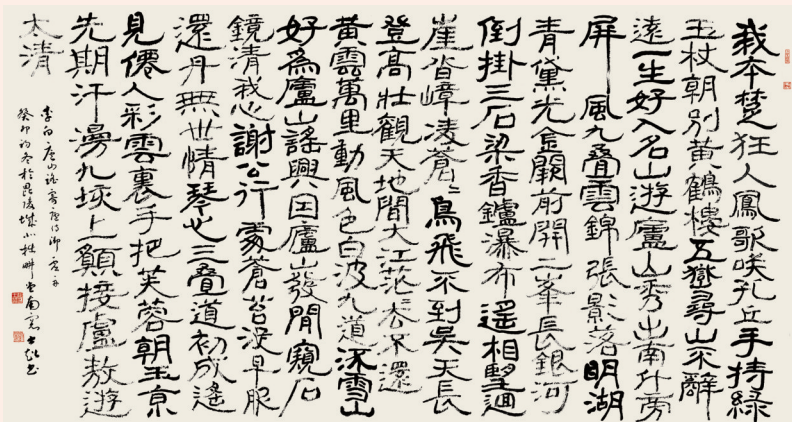 我本楚狂人鳳歌咲孔丘手持綠
玉杖朝別黃鶴樓五嶽尋山不辭
遠一生好入名山遊廬山秀出南斗旁
屏風九疊雲錦張影落明湖
青黛光金闕前開二峯長銀河
倒掛三石梁香鑪瀑布遙相望迴
崖沓嶂凌蒼〻鳥飛不到吳天長
登高壯觀天地間大江茫〻去不還
黃雲萬里動風色白波九道流雪山
好為廬山謠興因廬山發閒窺石
鏡清我心謝公行處蒼苔沒早服
還丹無世情琴心三疊道初成遙
見僊人彩雲裏手把芙蓉朝玉京
先期汗漫九垓上願接盧敖遊
太清
李白廬山謠寄盧侍御虛舟
癸卯初冬於毘陵城北